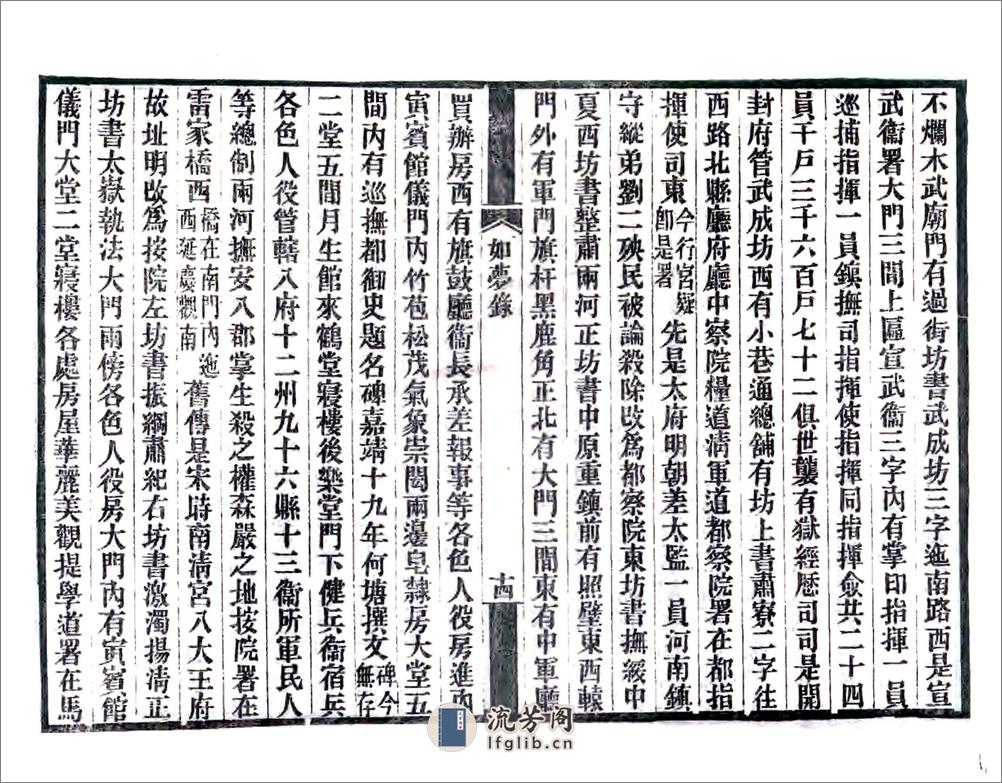 不爛木武廟門有過街坊書武成坊三字迤南路西是宣
武衛署大門三間上匾宣武衛三字內有掌印指揮一員
巡捕指揮一員鎮撫司指揮使指揮同指揮僉共二十四
員千戸三千六百戸七十二俱世襲有獄經歷司司是開
封府管武成坊西有小巷通總舖有坊上書肅寮二字往
西路北縣廳府廳中察院糧道淸軍道都察院署在都指
揮使司東今行宮疑卽是署先是太府明朝差太監一員河南鎮
守縱弟劉二殃民被論殺除改爲都察院東坊書撫綏中
夏西坊書整肅兩河正坊書中原重鎮前有照壁東西轅
門外有軍門旗杆黑鹿角正北有大門三間東有中軍廳
如夢錄
十四
買辦房西有旗鼓廳衛長承差報事等各色人役房進內
寅賓館儀門內竹苞松茂氣象崇閎兩邊皂隸房大堂五
間內有巡撫都御史題名碑嘉靖十九年何塘撰文碑今無存
二堂五間月生館來鶴堂寢樓後樂堂門下健兵衛宿兵
各色人役管轄八府十二州九十六縣十三衞所軍民人
等總制兩河撫安八郡掌生殺之權森嚴之地按院署在
雷家橋西橋在南門內迤西延慶觀南舊傳是宋時南淸宮八大王府
故址明改爲按院左坊書振綱肅紀右坊書激濁揚淸正
坊書太嶽執法大門兩傍各色人役房大門內有寅賓館
儀門大堂二堂寢樓各處房屋華麗美觀提學道署在馬
流芳阁
lfglib.cn